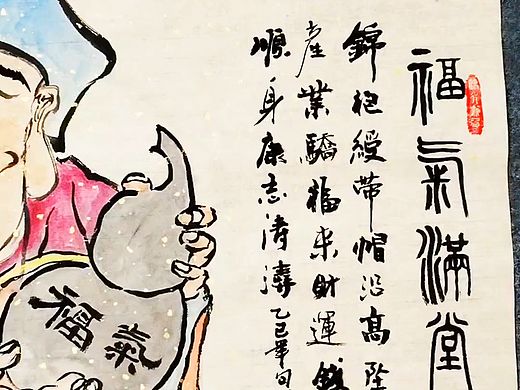 福氣滿堂
錦袍綬帶帽沿高陞
產業驕福来財運
順身康志濤 乙巳年旬
福氣